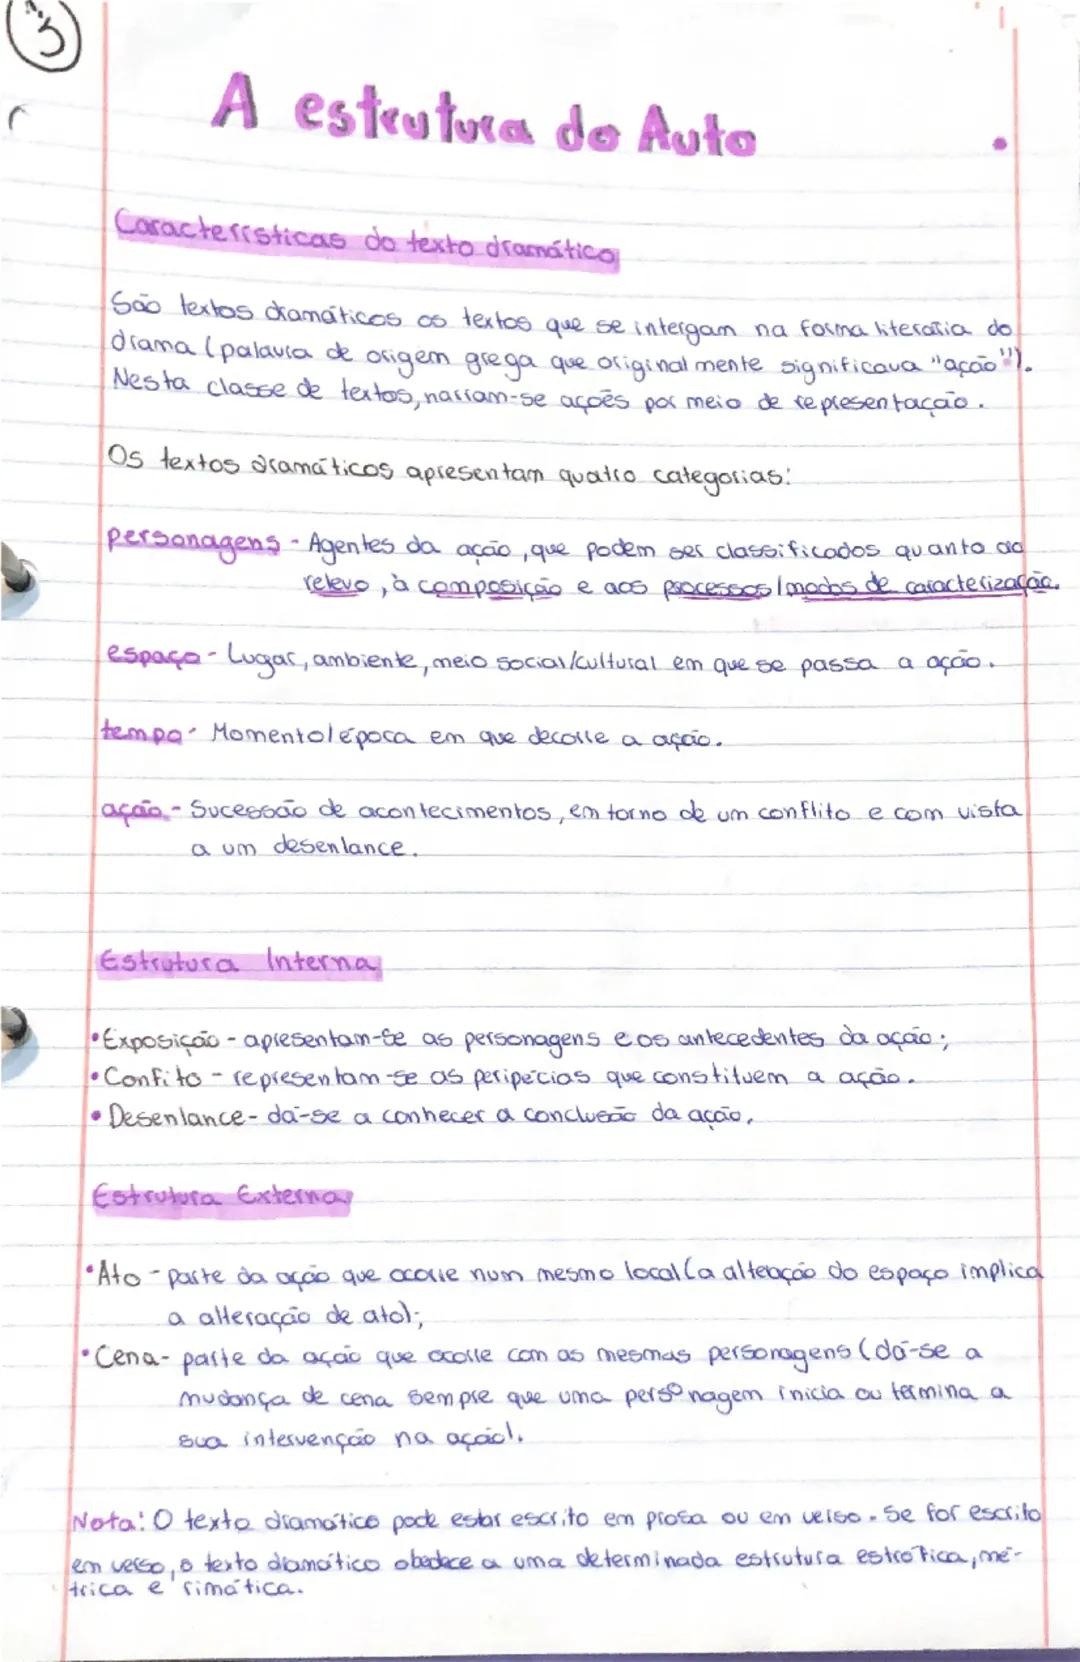 3
A estrutura do Auto
Características do texto dramático
São textos dramáticos os textos que se intergam na forma literária do
drama (palavra de origem grega que originalmente significava "ação").
Nesta classe de textos, narram-se açoēs por meio de representação.
Os textos dramáticos apresentam quatro categorias:
personagens - Agentes da ação, que podem ser classificados quanto ao
relevo, à composição e aos processos/modos de caracterização.
espaço - Lugar, ambiente, meio social/cultural em que se passa a ação.
tempo - Momento/época em que decorre a ação.
ação - Sucessão de acontecimentos, em torno de um conflito e com vista
a um desenlance.
Estrutura Interna
• Exposição - apresentam-se as personagens e os antecedentes da ação;
• Confito - representam-se as peripécias que constituem a ação.
• Desenlance - dá-se a conhecer a conclusão da ação.
Estrutura Externa
• Ato - parte da ação que ocorre num mesmo local (a alteação do espaço implica
a alteração de ato);
• Cena - parte da ação que ocorre com as mesmas personagens (dá-se a
mudança de cena sempre que uma personagem inicia ou termina a
sua intervenção na ação).
Nota: O texto dramático pode estar escrito em prosa ou em verso. Se for escrito
em verso, o texto dramático obedece a uma determinada estrutura estrófica, mé-
trica e rimática.